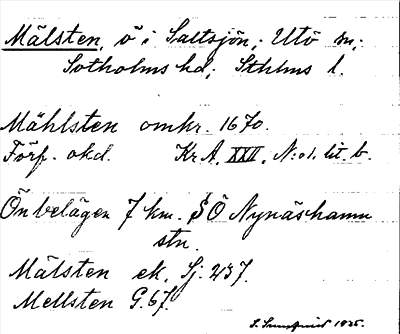 Mälsten, ö i Saltsjön; Utö sn;
Sotholms hd; Sthlms l.
Mählsten omkr. 1670.
Förf. okd. Kr A. XXII. N:o 1. lit. b.
Ön belägen 7 km. SÖ Nynäshamn
stn.
Mälsten ek. Sj. 237.
Mellsten G. 67.
1935.